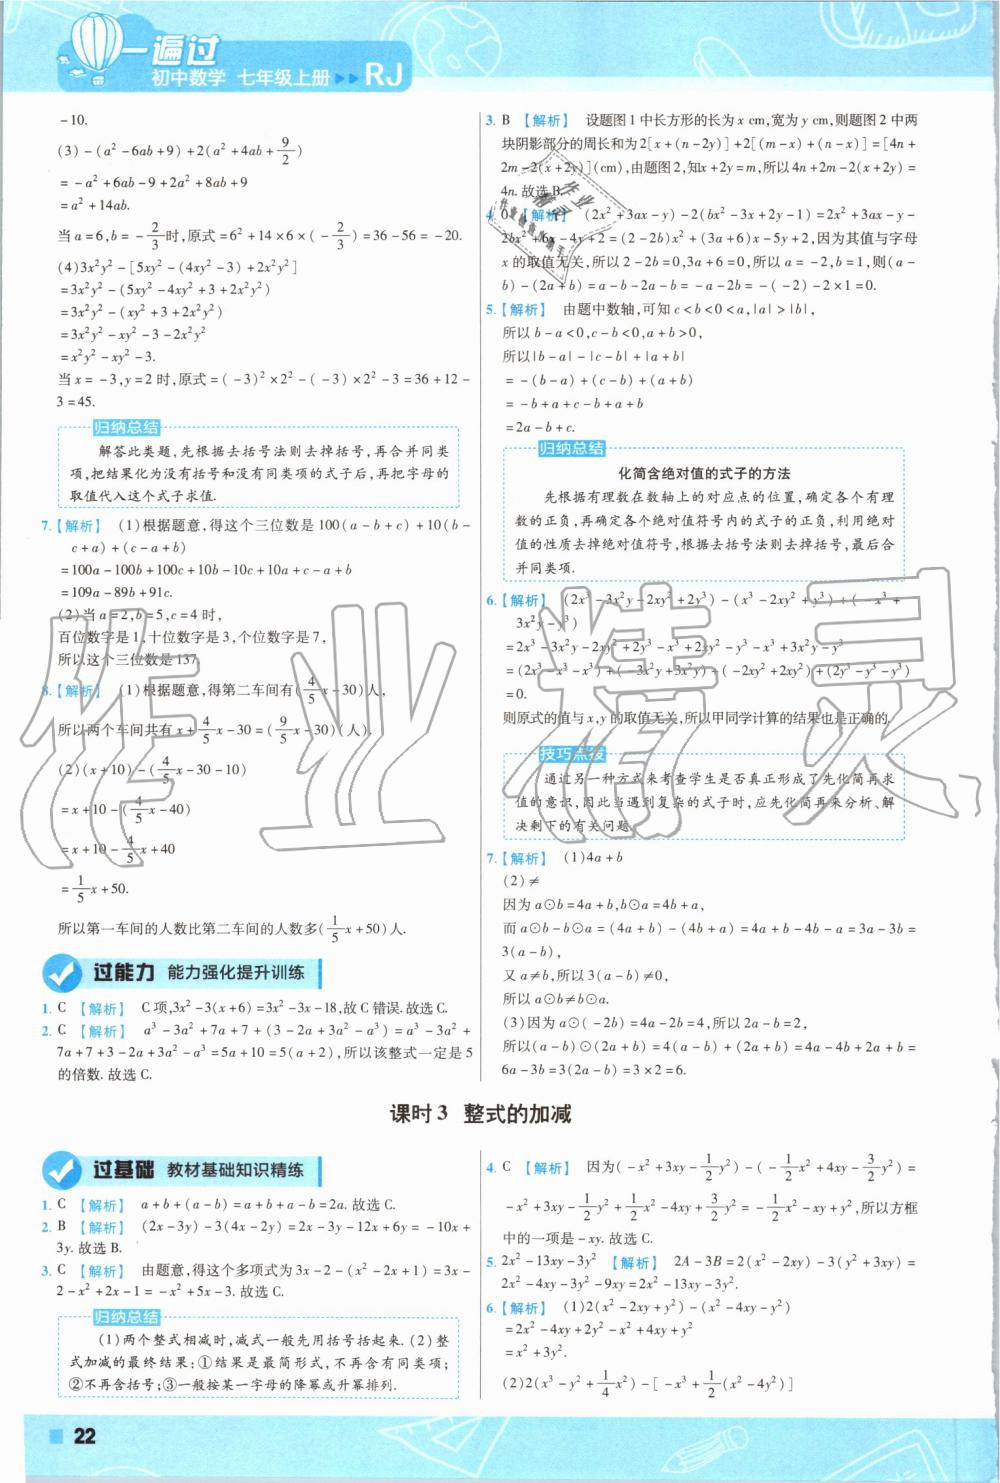 一遍过
初中数学 七年级上册 ▸▸ RJ
-10.
(3)-(a²-6ab+9)+2(a²+4ab+9/2)
=-a²+6ab-9+2a²+8ab+9
=a²+14ab.
当a=6,b=-2/3时,原式=6²+14×6×(-2/3)=36-56=-20.
(4)3x²y²-[5xy²-(4xy²-3)+2x²y²]
=3x²y²-(5xy²-4xy²+3+2x²y²)
=3x²y²-(xy²+3+2x²y²)
=3x²y²-xy²-3-2x²y²
=x²y²-xy²-3.
当x=-3,y=2时,原式=(-3)²×2²-(-3)×2²-3=36+12-
3=45.
归纳总结
解答此类题,先根据去括号法则去掉括号,再合并同类
项,把结果化为没有括号和没有同类项的式子后,再把字母的
取值代入这个式子求值.
7.【解析】 (1)根据题意,得这个三位数是100(a-b+c)+10(b-
c+a)+(c-a+b)
=100a-100b+100c+10b-10c+10a+c-a+b
=109a-89b+91c.
(2)当a=2,b=5,c=4时,
百位数字是1,十位数字是3,个位数字是7,
所以这个三位数是137.
8.【解析】 (1)根据题意,得第二车间有(4/5x-30)人,
所以两个车间共有x+4/5x-30=(9/5x-30)(人).
(2)(x+10)-(4/5x-30-10)
=x+10-(4/5x-40)
=x+10-4/5x+40
=1/5x+50.
所以第一车间的人数比第二车间的人数多(1/5x+50)人.
过能力 能力强化提升训练
1. C 【解析】 C项,3x²-3(x+6)=3x²-3x-18,故C错误.故选C.
2. C 【解析】 a³-3a²+7a+7+(3-2a+3a²-a³)=a³-3a²+
7a+7+3-2a+3a²-a³=5a+10=5(a+2),所以该整式一定是5
的倍数.故选C.
3. B 【解析】 设题图1中长方形的长为x cm,宽为y cm,则题图2中两
块阴影部分的周长和为2[x+(n-2y)]+2[(m-x)+(n-x)]=[4n+
2m-2(x+2y)](cm),由题图2,知x+2y=m,所以4n+2m-2(x+2y)=
4n.故选B.
4. 0 【解析】 (2x²+3ax-y)-2(bx²-3x+2y-1)=2x²+3ax-y-
2bx²+6x-4y+2=(2-2b)x²+(3a+6)x-5y+2,因为其值与字母
x的取值无关,所以2-2b=0,3a+6=0,所以a=-2,b=1,则(a-
b)-(2a+b)=a-b-2a-b=-a-2b=-(-2)-2×1=0.
5.【解析】 由题中数轴,可知c<b<0<a,|a|>|b|,
所以b-a<0,c-b<0,a+b>0,
所以|b-a|-|c-b|+|a+b|
=-(b-a)+(c-b)+(a+b)
=-b+a+c-b+a+b
=2a-b+c.
归纳总结
化简含绝对值的式子的方法
先根据有理数在数轴上的对应点的位置,确定各个有理
数的正负,再确定各个绝对值符号内的式子的正负,利用绝对
值的性质去掉绝对值符号,根据去括号法则去掉括号,最后合
并同类项.
6.【解析】 (2x³-3x²y-2xy²+2y³)-(x³-2xy²+y³)+(-x³+
3x²y-y³)
=2x³-3x²y-2xy²+2y³-x³+2xy²-y³-x³+3x²y-y³
=(2x³-x³-x³)+(-3x²y+3x²y)+(-2xy²+2xy²)+(2y³-y³-y³)
=0.
则原式的值与x,y的取值无关,所以甲同学计算的结果也是正确的.
技巧点拨
通过另一种方式来考查学生是否真正形成了先化简再求
值的意识,因此当遇到复杂的式子时,应先化简再来分析、解
决剩下的有关问题.
7.【解析】 (1)4a+b
(2)≠
因为a⊙b=4a+b,b⊙a=4b+a,
而a⊙b-b⊙a=(4a+b)-(4b+a)=4a+b-4b-a=3a-3b=
3(a-b),
又a≠b,所以3(a-b)≠0,
所以a⊙b≠b⊙a.
(3)因为a⊙(-2b)=4a-2b=4,所以2a-b=2,
所以(a-b)⊙(2a+b)=4(a-b)+(2a+b)=4a-4b+2a+b=
6a-3b=3(2a-b)=3×2=6.
课时3 整式的加减
过基础 教材基础知识精练
1. C 【解析】 a+b+(a-b)=a+b+a-b=2a.故选C.
2. B 【解析】 (2x-3y)-3(4x-2y)=2x-3y-12x+6y=-10x+
3y.故选B.
3. C 【解析】 由题意,得这个多项式为3x-2-(x²-2x+1)=3x-
2-x²+2x-1=-x²+5x-3.故选C.
归纳总结
(1)两个整式相减时,减式一般先用括号括起来.(2)整
式加减的最终结果:①结果是最简形式,不再含有同类项;
②不再含括号;③一般按某一字母的降幂或升幂排列.
4. C 【解析】 因为(-x²+3xy-1/2y²)-(-1/2x²+4xy-3/2y²)=
-x²+3xy-1/2y²+1/2x²-4xy+3/2y²=-1/2x²-xy+y²,所以方框
中的一项是-xy.故选C.
5. 2x²-13xy-3y² 【解析】 2A-3B=2(x²-2xy)-3(y²+3xy)=
2x²-4xy-3y²-9xy=2x²-13xy-3y².
6.【解析】 (1)2(x²-2xy+y²)-(x²-4xy-y²)
=2x²-4xy+2y²-x²+4xy+y²
=x²+3y².
(2)2(x³-y²+1/4x)-[-x³+1/2(x²-4y²)]
22
作业精灵